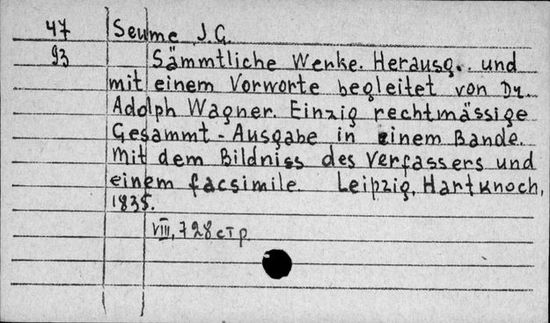 47 Seume J.G.
93 Sämmtliche Werke. Herausg. und
mit einem Vorworte begleitet von Dr.
Adolph Wagner. Einzig rechtmässige
Gesammt-Ausgabe in einem Bande.
Mit dem Bildniss des Verfassers und
einem facsimile Leipzig, Hartknoch,
1835.
VIII, 728 стр.